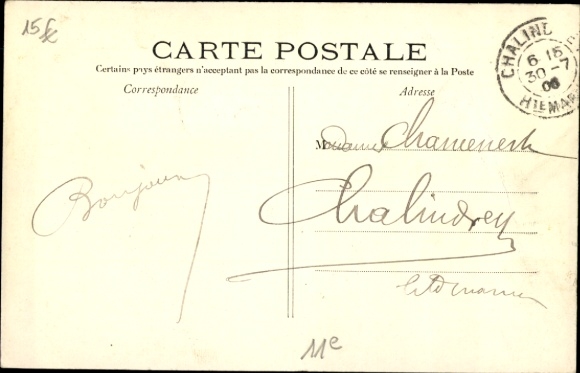 15f
CARTE POSTALE
Certains pays étrangers n'acceptant pas la correspondance de ce côté se renseigner à la Poste
Correspondance
Adresse
CHALIND
6 15
30 - 7
06
HTE MAR
Madame
Chalindrey
Hte Marne
Bonjour
11e